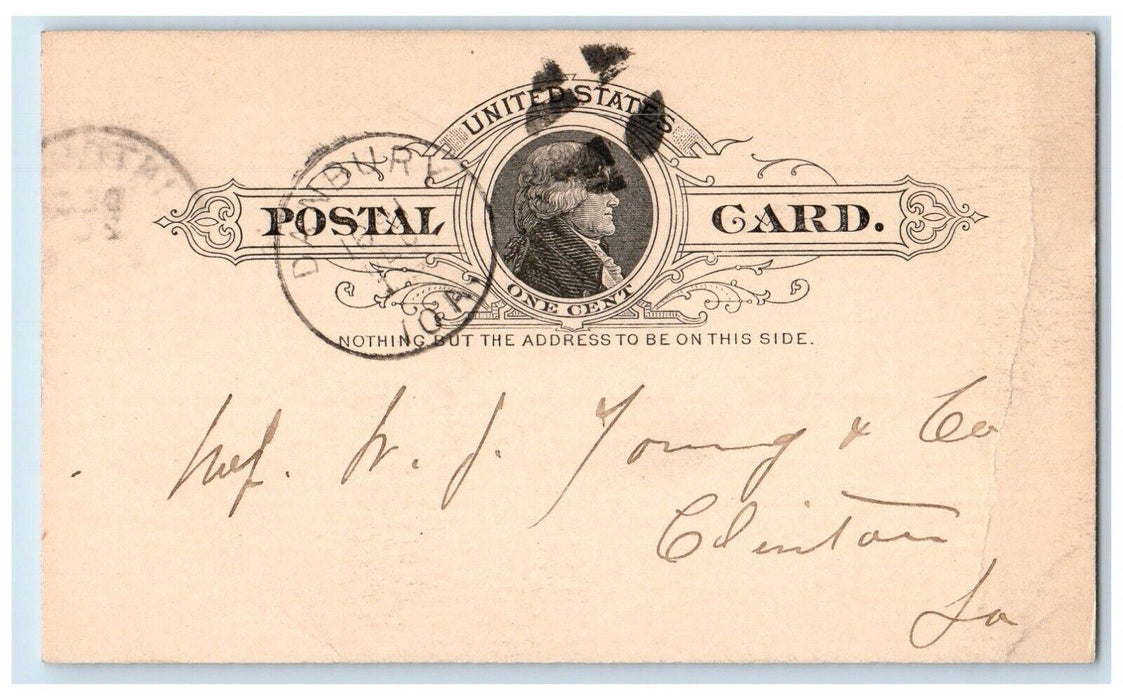 UNITED STATES
POSTAL CARD.
ONE CENT
DANBURY
IOA
NOTHING BUT THE ADDRESS TO BE ON THIS SIDE.
W. J. Young & Co
Clinton
Ia